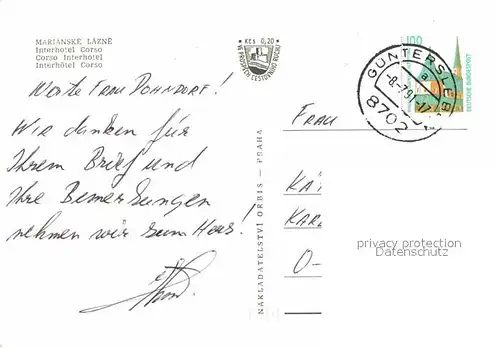 MARIÁNSKÉ LÁZNĚ
Interhotel Corso
Corso Interhotel
Interhôtel Corso
Kčs 0,20
VE PROSPĚCH CESTOVNÍHO RUCHU
100
DEUTSCHE BUNDESPOST
GÜNTERSLEB
a
-8.-7.91-17
8702
Werte Frau Dohndorf!
Wir danken für
Ihrem Brief und
Ihre Bemerkungen
nehmen wir zum Herz!
NAKLADATELSTVÍ ORBIS — PRAHA
FRAU
KÄ
KAR
O-
privacy protection
Datenschutz